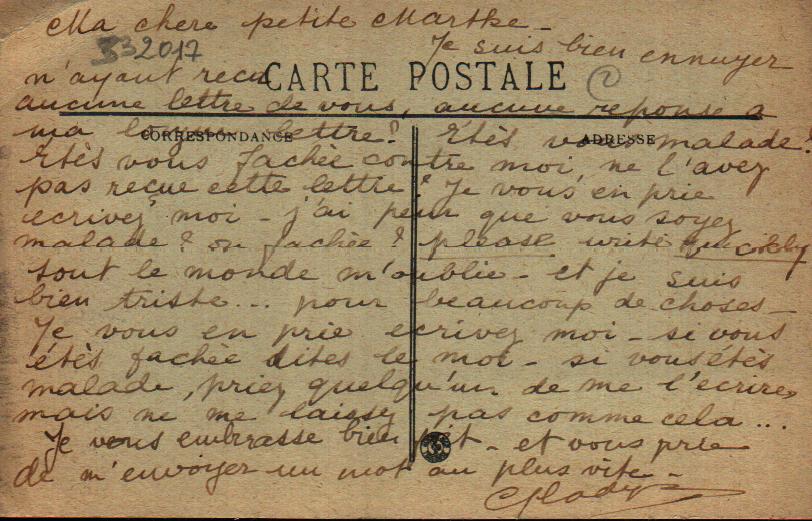 Ma chere petite Marthe -
332017
Je suis bien ennuyer
n'ayant recu
CARTE POSTALE
2
aucune lettre de vous, aucune reponse a
ma longue lettre? Etès vous malade?
CORRESPONDANCE
ADRESSE
Etès vous fachèe contre moi, ne l'avez
pas reçue cette lettre? Je vous en prie
ecrivez moi - j'ai peur que vous soyez
malade? ou fachèe? please write quickly
tout le monde m'oublie - et je suis
bien triste... pour beaucoup de choses -
Je vous en prie ecrivez moi - si vous
étès fachee dites le moi - si vous étès
malade, priez quelqu'un de me l'ecrire,
mais ne me laissez pas comme cela...
Je vous embrasse bien fort - et vous prie
de m'envoyer un mot au plus vite -
Gladys